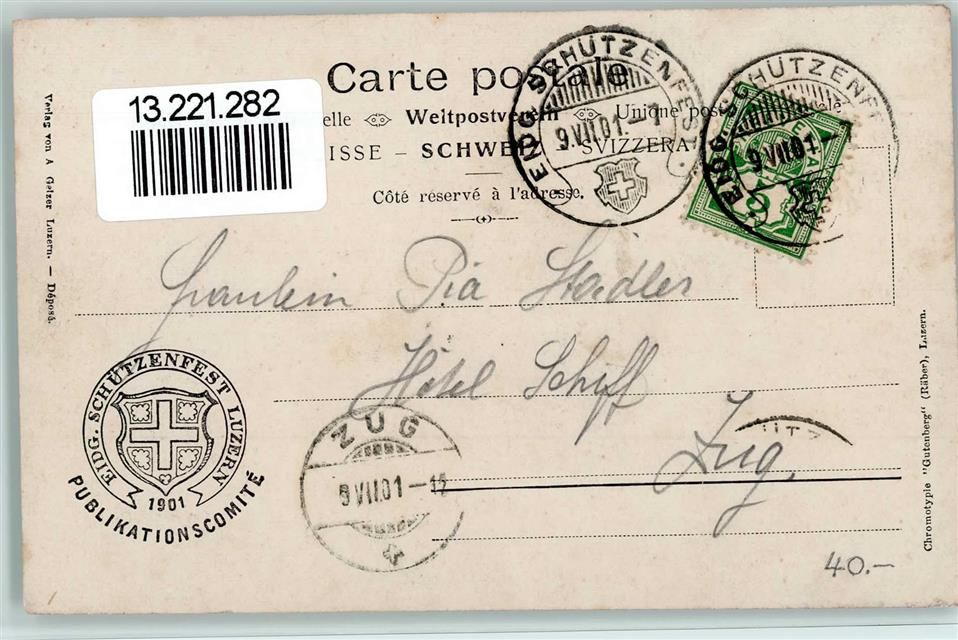 13.221.282
Carte postale
Weltpostverein Unique
SCHWEIZ – SVIZZERA
Côté réservé à l'adresse.
EIDG. SCHÜTZENFEST
9.VII.01.
EIDG. SCHÜTZENFEST
9.VII.01.
Fräulein Pia Stadler
Hôtel Schiff
Zug.
EIDG. SCHÜTZENFEST LUZERN
1901
PUBLIKATIONSCOMITÉ
ZUG
9.VII.01
ÜTZ
40.–
Verlag von A Gelzer Luzern. – Déposé.
Chromotypie "Gutenberg" (Räber), Luzern.